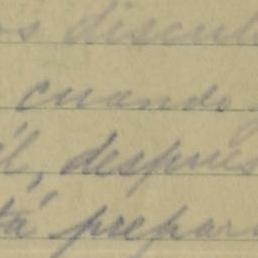 os discul
cuando
él, después
tá prepar